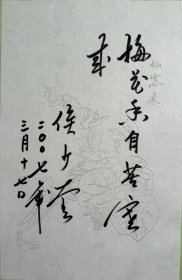 梅花香自苦寒
来
侯少奎
二〇〇七年
三月十七日